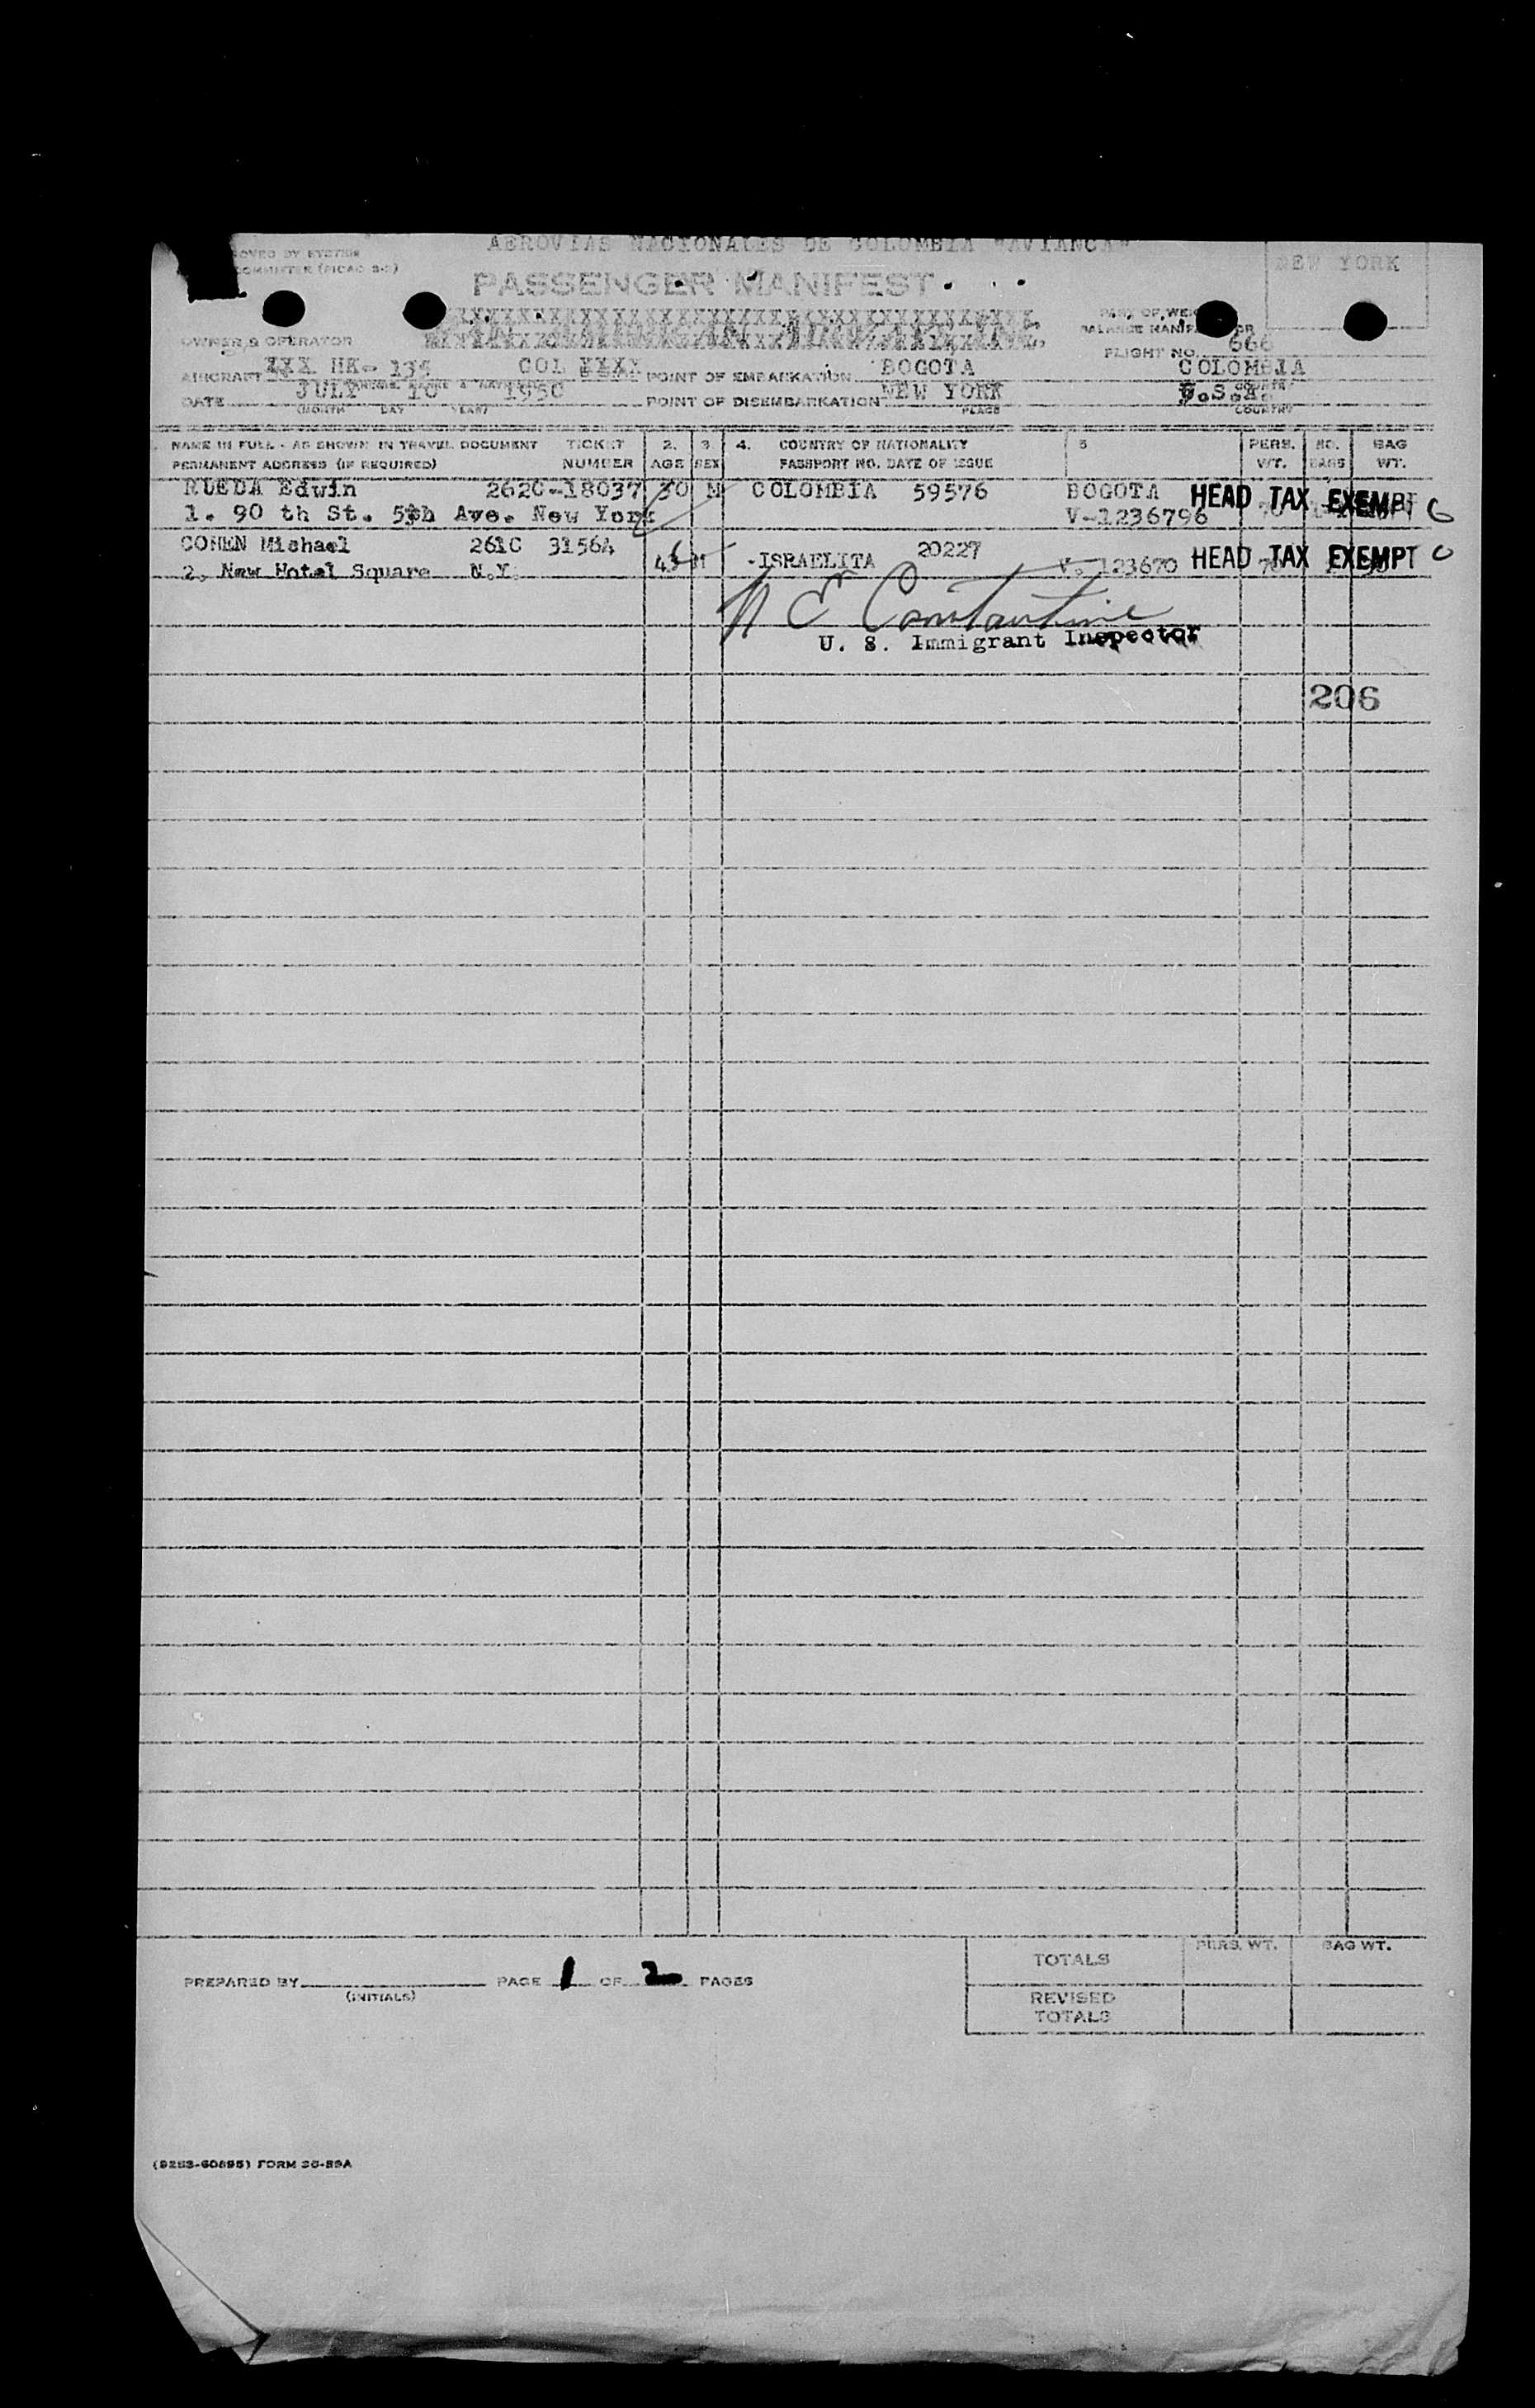 AEROVIAS NACIONALES DE COLOMBIA "AVIANCA"
NEW YORK
PASSENGER MANIFEST
OWNER & OPERATOR
FLIGHT NO. 666
AIRCRAFT XXX HK- 135 COL XXXX POINT OF EMBARKATION BOGOTA COLOMBIA
DATE JULY 10 1950 POINT OF DISEMBARKATION NEW YORK U.S.A.
(MONTH DAY YEAR) PLACE COUNTRY
NAME IN FULL - AS SHOWN IN TRAVEL DOCUMENT TICKET 2. 3. 4. COUNTRY OF NATIONALITY 5 PERS. NO. BAG
PERMANENT ADDRESS (IF REQUIRED) NUMBER AGE SEX PASSPORT NO. DATE OF ISSUE WT. BAGS WT.
RUEDA Edwin 262C-18037 30 M COLOMBIA 59576 BOGOTA HEAD TAX EXEMPT
1. 90 th St. 5th Ave. New York V-1236796
COHEN Michael 261C 31564 20227
2. New Hotel Square N.Y. M -ISRAELITA V. 123670 HEAD TAX EXEMPT
N E Constantine
U. S. Immigrant Inspector
206
TOTALS PERS. WT. BAG WT.
PREPARED BY PAGE 1 OF 2 PAGES
(INITIALS)
REVISED
TOTALS